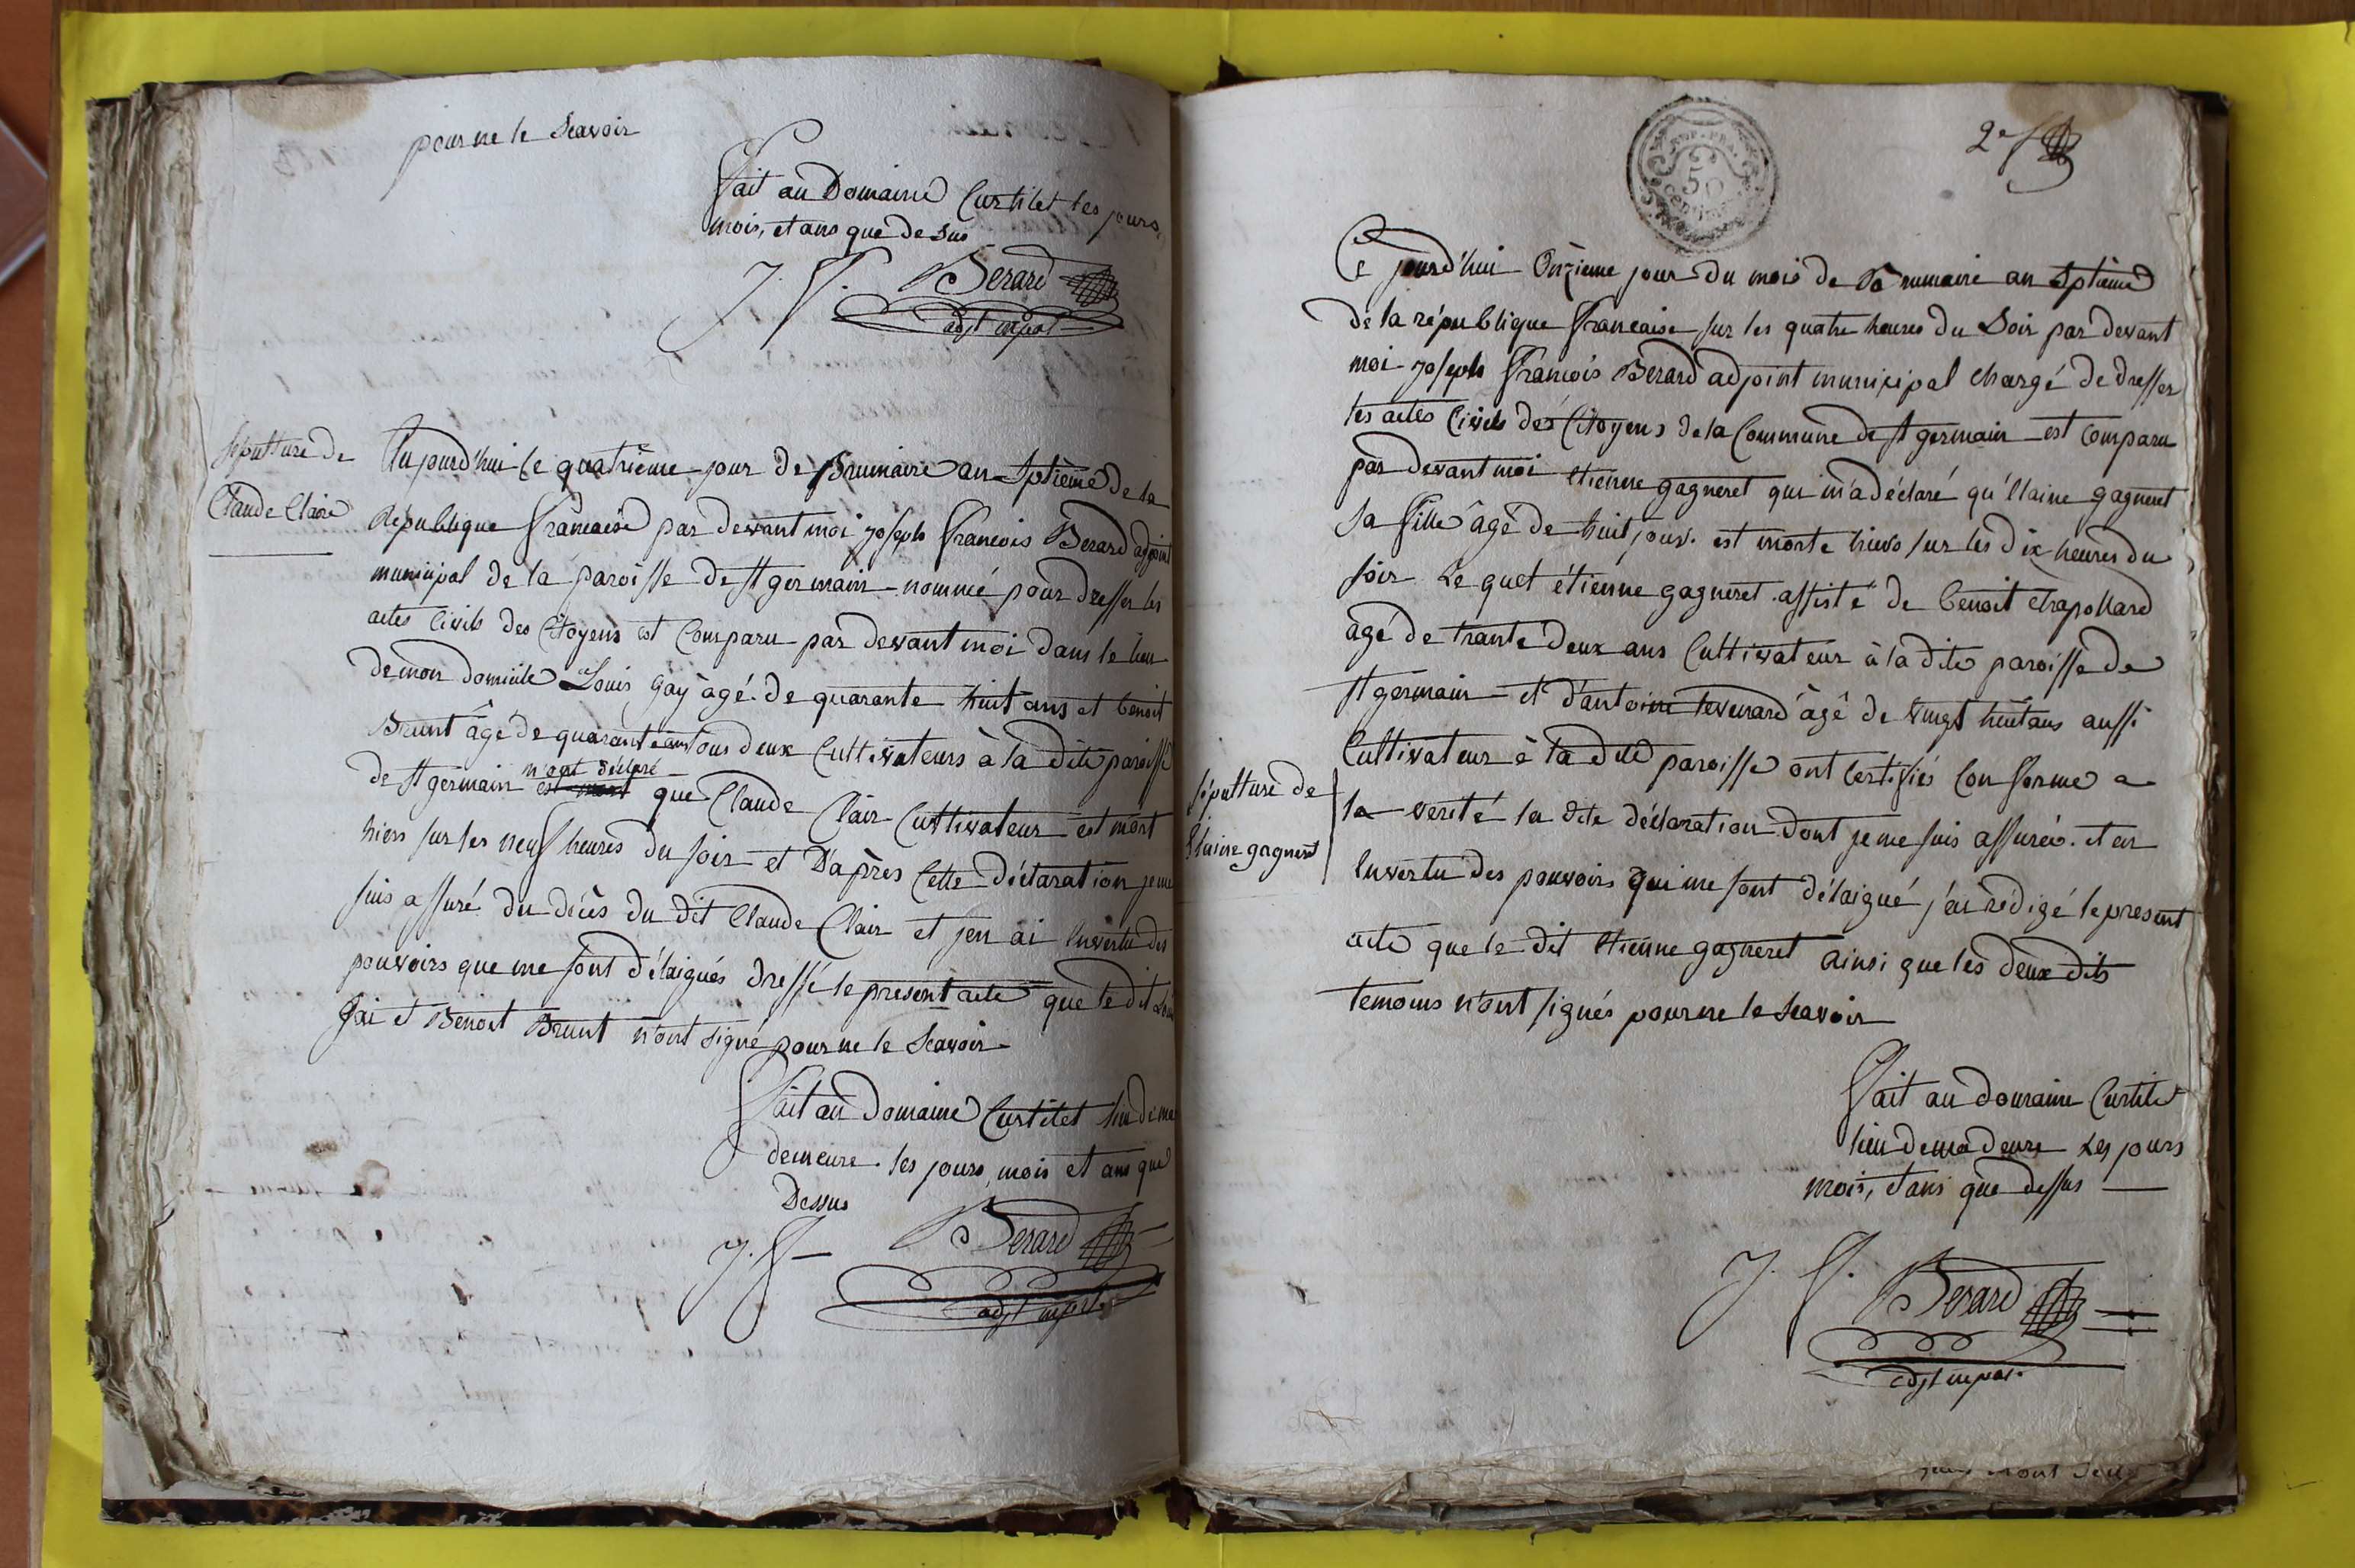 pour ne le Scavoir
Fait au Domaine Curtilet les jours,
mois, et ans que de Sus
J. f. Berard
adjt mpal
Sepulture de
Claude Claire
Aujourd'hui le quatrième jour de Brumaire an Sptième de la
Republique francaise par devant moi joseph francois Berard adjoint
municipal de la paroisse de St germain nommé pour dresser les
actes Civils des Citoyens est Comparu par devant moi dans le lieu
de mon domicile Louis Gay âgé de quarante huit ans et benoit
Brunt âgé de quarante ans tous deux Cultivateurs à la dite paroisse
de St germain m'ont déclaré que Claude Clair Cultivateur est mort
hiers sur les neuf heures du soir et D'après Cette Déclaration je me
suis assuré du décès du dit Claude Clair et jen ai Envertu des
pouvoirs que me sont délaigués dressé le present acte que le dit Louis
Gai et Benoit Brunt n'ont signé pour ne le Scavoir
Fait au Domaine Curtilet lieu de ma
demeure les jours, mois et ans que
Dessus
J. f. Berard
adjt mpal
2e
REP. FRA.
50
CENTIMES
Ce jourd'hui Onzieme jour du mois de Brumaire an Sptième
de la république francaise sur les quatre heures du Soir par devant
moi joseph francois Berard adjoint municipal chargé de dresser
les actes Civils des Citoyens de la Commune de St germain est Comparu
par devant moi étienne gagneret qui m'a déclaré qu'Elaine gagneret
sa fille âgé de huit jours est morte hiers sur les dix heures du
soir Le quel étienne gagneret assisté de benoit Chapollard
âgé de trante deux ans Cultivateur à la dite paroisse de
St germain et d'antoine tevenard âgé de vingt huit ans aussi
Cultivateur à la dite paroisse ont Certifiés Conforme a
la verité la dite déclaration dont je me suis assurée et en
Envertu des pouvoirs qui me sont délaigué j'ai rédigé le present
acte que le dit étienne gagneret ainsi que les deux dits
temoins n'ont signés pour ne le Scavoir
Sépulture de
Elaine gagneret
Fait au domaine Curtilet
lieu de ma demeure Les jours
mois, et ans que dessus
J. f. Berard
adjt mpal.